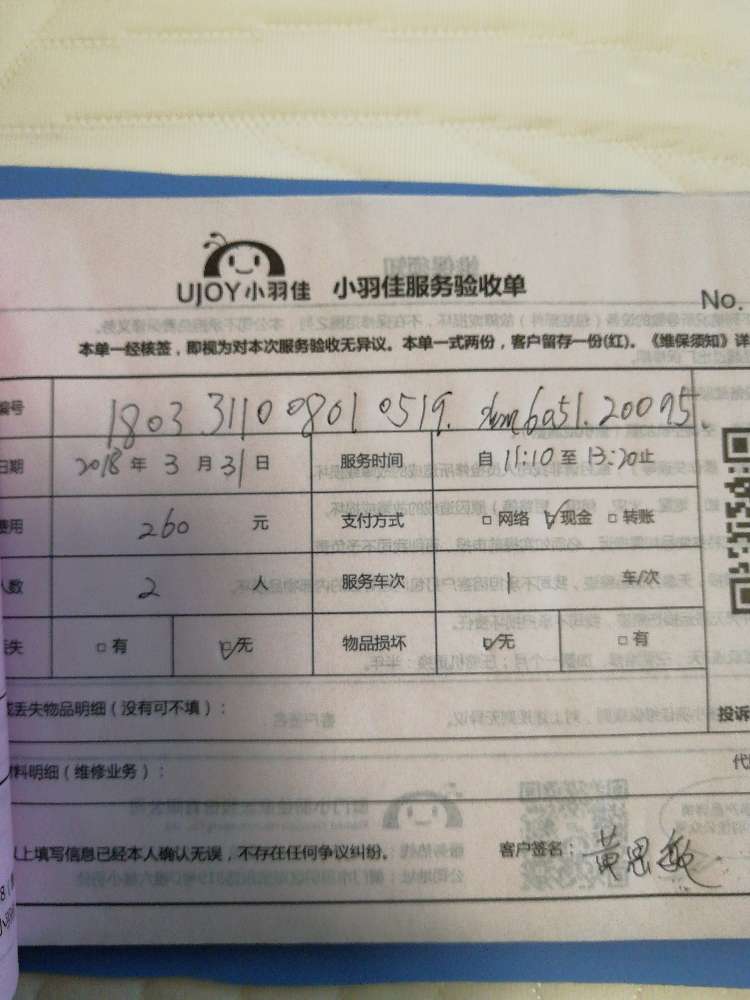 UJOY小羽佳 小羽佳服务验收单
No.
本单一经核签，即视为对本次服务验收无异议。本单一式两份，客户留存一份(红)。《维保须知》详
编号 1803311008010519. xm6051.20095.
日期 2018年3月31日 服务时间 自11:10至13:20止
费用 260 元 支付方式 □网络 ☑现金 □转账
人数 2 人 服务车次 1 车/次
丢失 □有 ☑无 物品损坏 ☑无 □有
或丢失物品明细（没有可不填）： 投诉
材料明细（维修业务）： 代
以上填写信息已经本人确认无误，不存在任何争议纠纷。 客户签名：黄思敏